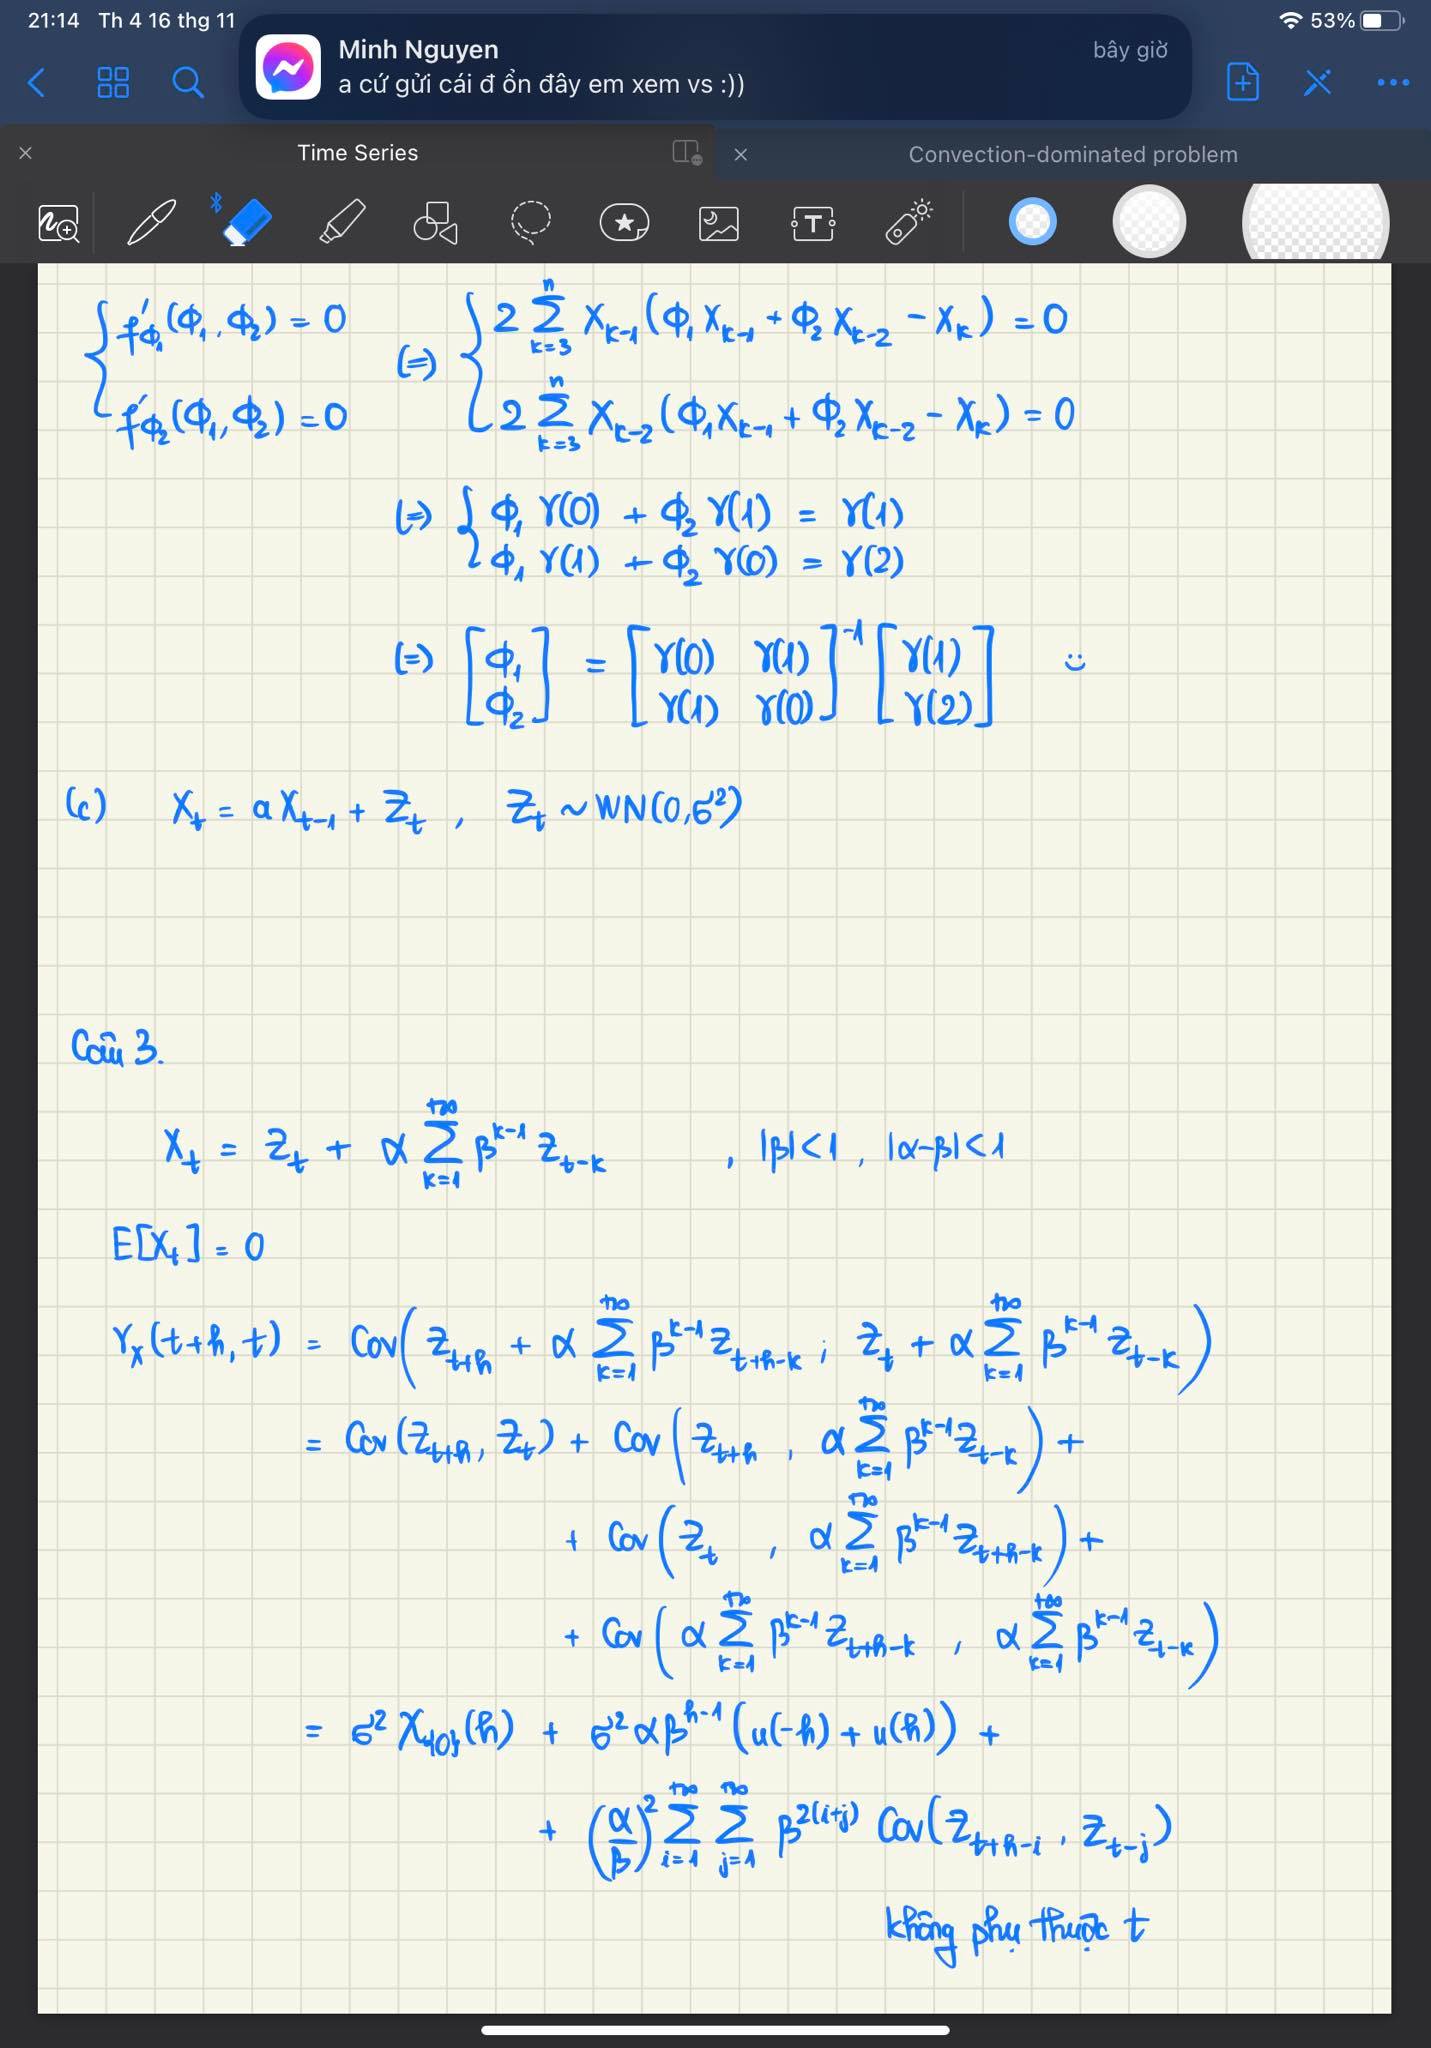 21:14 Th 4 16 thg 11
53%
Minh Nguyen
bây giờ
a cứ gửi cái đ ổn đây em xem vs :))
Time Series
Convection-dominated problem
{ f'_{ϕ_1}(ϕ_1, ϕ_2) = 0 (=) { 2 Σ_{k=3}^{n} X_{k-1}(ϕ_1 X_{k-1} + ϕ_2 X_{k-2} - X_k) = 0
f'_{ϕ_2}(ϕ_1, ϕ_2) = 0 2 Σ_{k=3}^{n} X_{k-2}(ϕ_1 X_{k-1} + ϕ_2 X_{k-2} - X_k) = 0
(=) { ϕ_1 γ(0) + ϕ_2 γ(1) = γ(1)
ϕ_1 γ(1) + ϕ_2 γ(0) = γ(2)
(=) [ϕ_1 ; ϕ_2] = [γ(0) γ(1) ; γ(1) γ(0)]^{-1} [γ(1) ; γ(2)] :)
(c) X_t = a X_{t-1} + Z_t , Z_t ~ WN(0, σ²)
Câu 3.
X_t = Z_t + α Σ_{k=1}^{+∞} β^{k-1} Z_{t-k} , |β| < 1 , |α-β| < 1
E[X_t] = 0
γ_X(t+h, t) = Cov( Z_{t+h} + α Σ_{k=1}^{+∞} β^{k-1} Z_{t+h-k} ; Z_t + α Σ_{k=1}^{+∞} β^{k-1} Z_{t-k} )
= Cov(Z_{t+h}, Z_t) + Cov( Z_{t+h} , α Σ_{k=1}^{+∞} β^{k-1} Z_{t-k} ) +
+ Cov( Z_t , α Σ_{k=1}^{+∞} β^{k-1} Z_{t+h-k} ) +
+ Cov( α Σ_{k=1}^{+∞} β^{k-1} Z_{t+h-k} , α Σ_{k=1}^{+∞} β^{k-1} Z_{t-k} )
= σ² χ_{{0}}(h) + σ² α β^{h-1} (u(-h) + u(h)) +
+ (α/β)² Σ_{i=1}^{+∞} Σ_{j=1}^{+∞} β^{2(i+j)} Cov(Z_{t+h-i} , Z_{t-j})
không phụ thuộc t